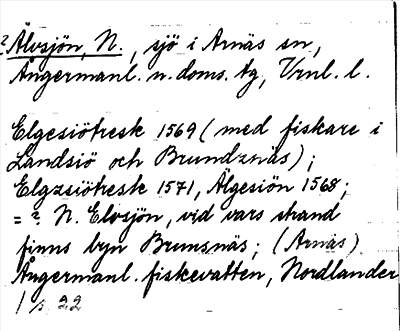 ? Älvsjön, N., sjö i Arnäs sn,
Ångermanl. n. doms. tg, Vrnl. l.
Elgesiötresk 1569 (med fiskare i
Landsiö och Brundznäs);
Elgzsiötresk 1571, Älgesiön 1568;
= ? N. Elvsjön, vid vars strand
finns byn Brunsnäs; (Arnäs)
Ångermanl. fiskevatten, Nordlander
/ s. 22